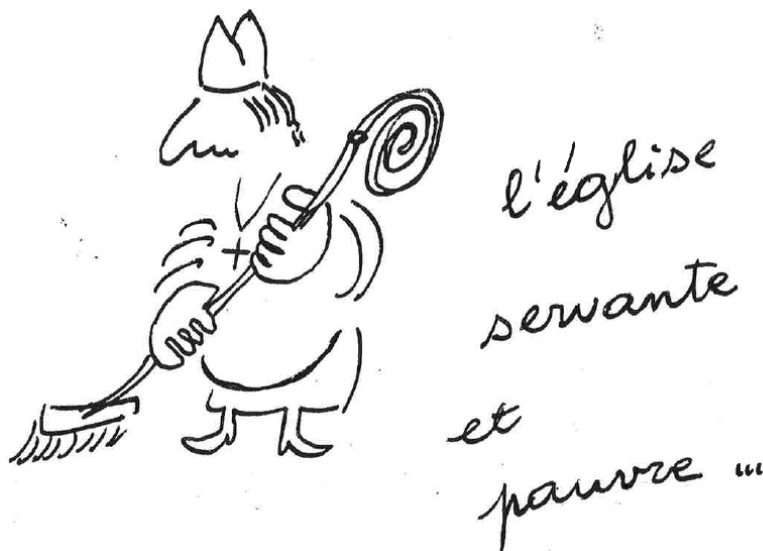 l'église
servante
et
pauvre ...